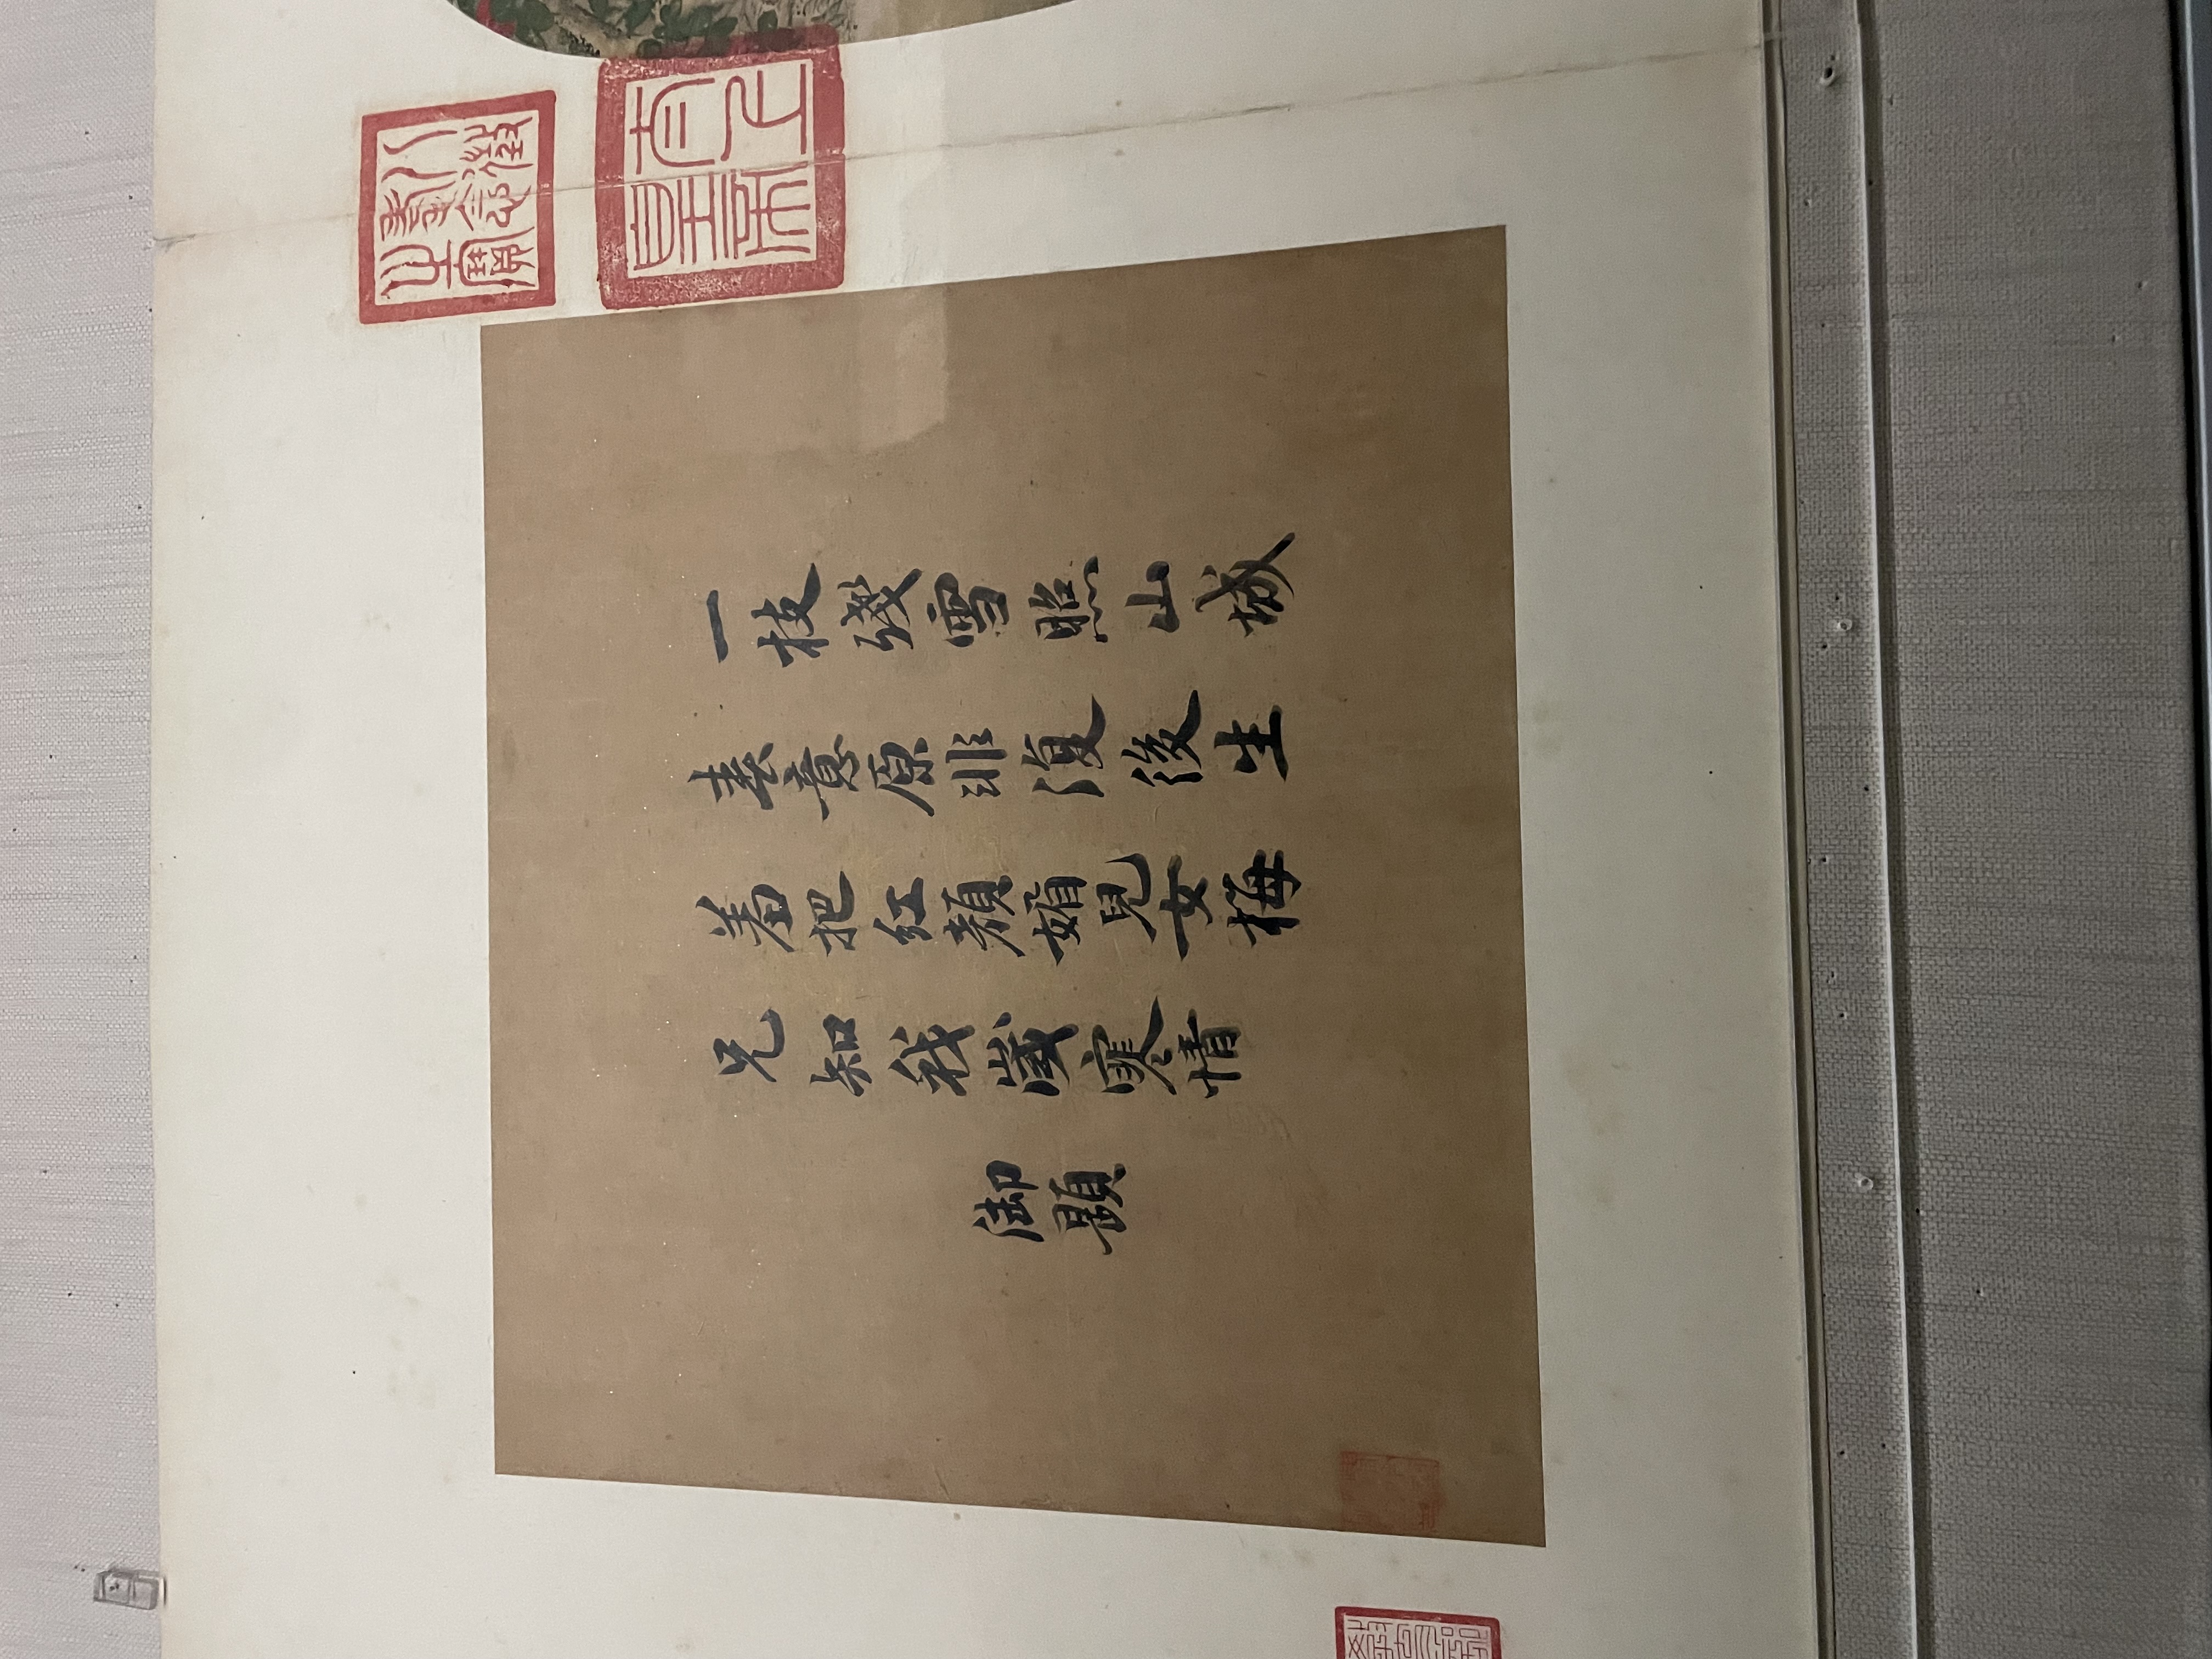 一枝殘雪照山城
春意原非復後生
羞把紅顏媚兒女梅
兄知我歲寒情
御題
八徵
耄念
之寶
太上
皇帝